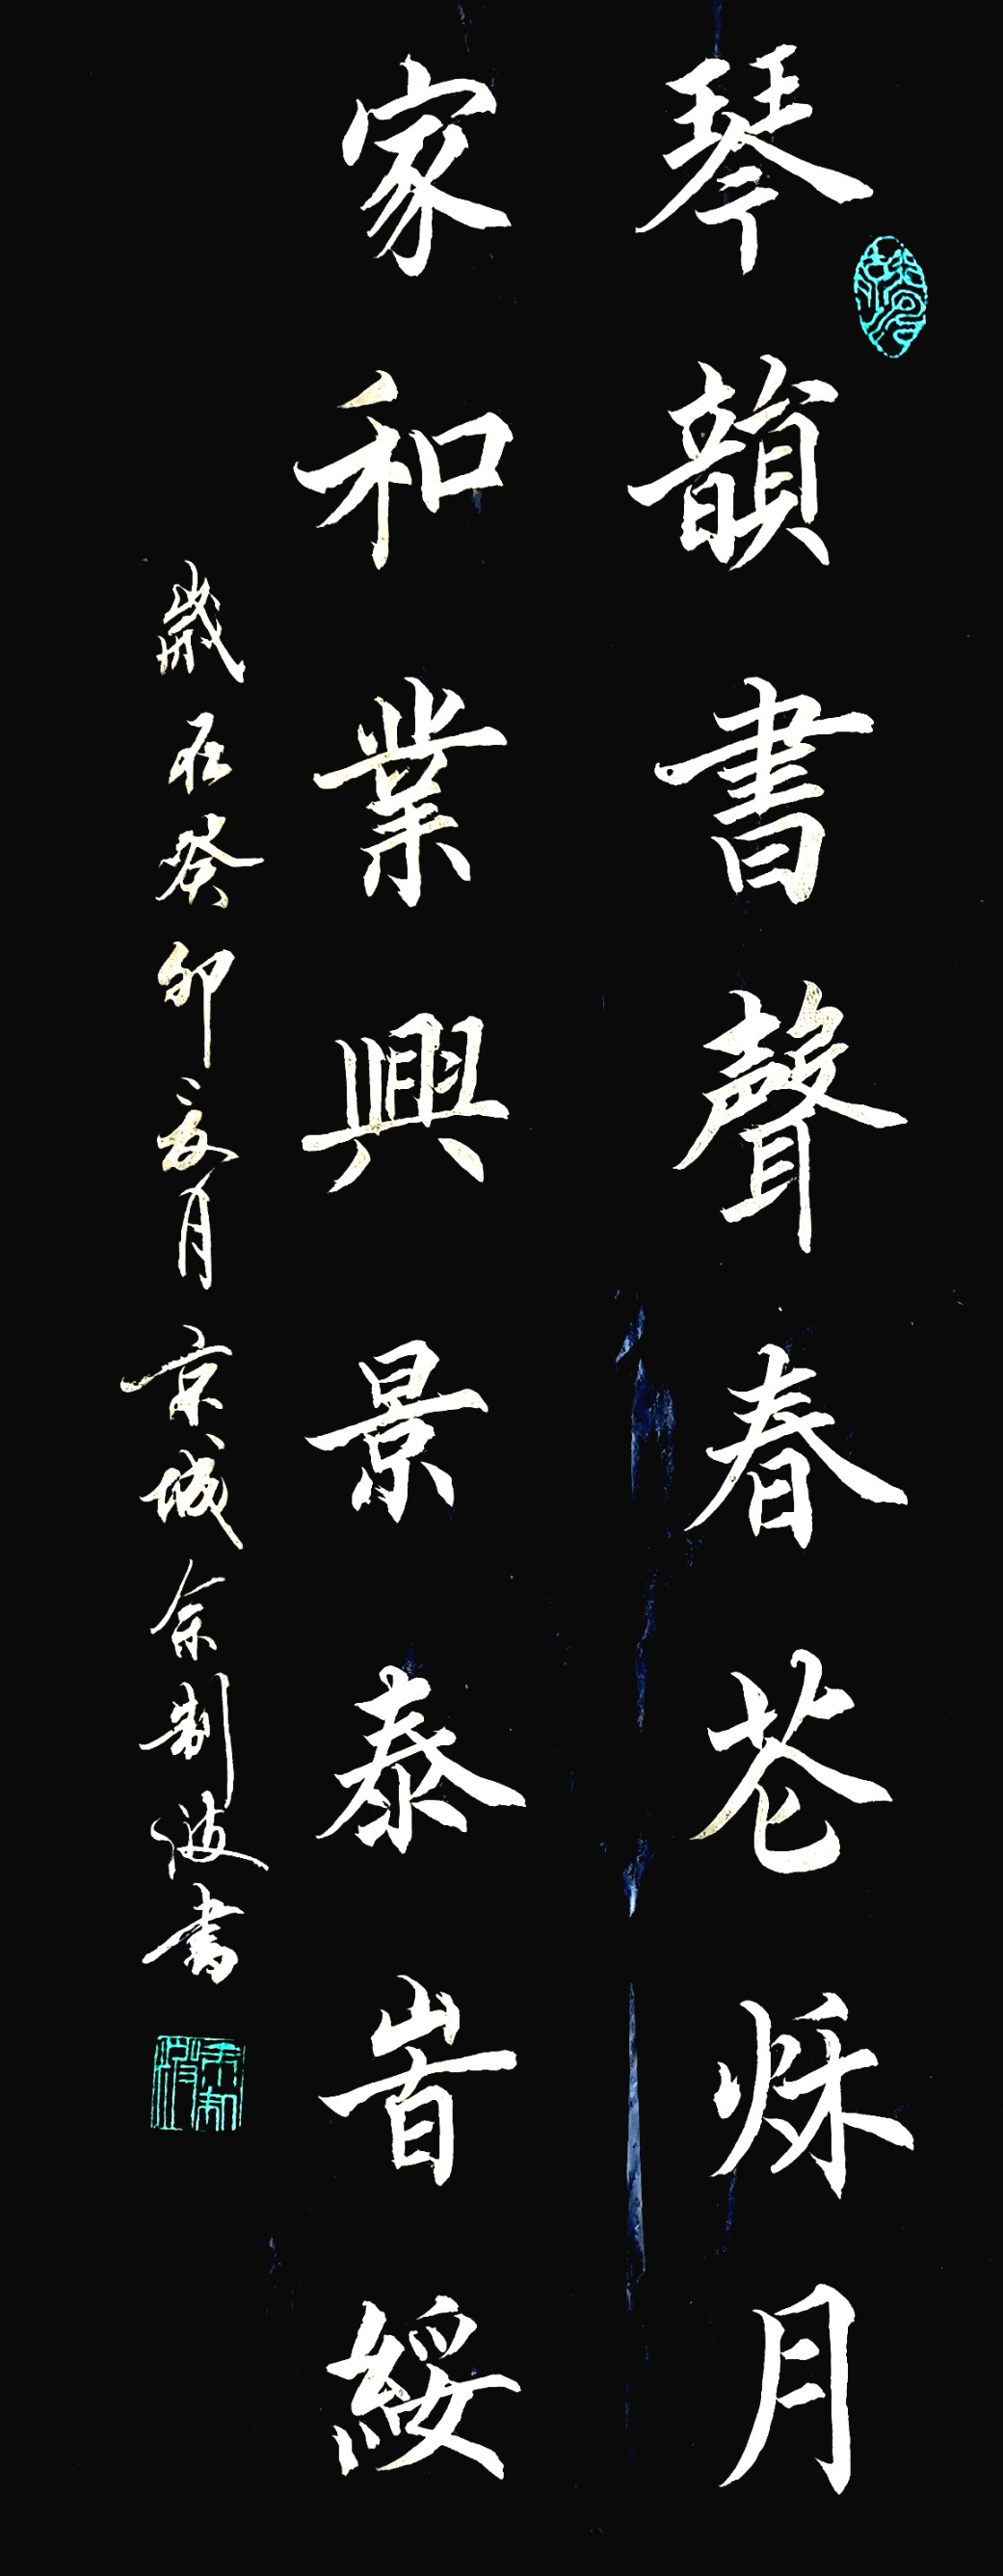 琴韻書聲春芲秌月
家和業興景泰旹綏
歲在癸卯夏月京城余制波書